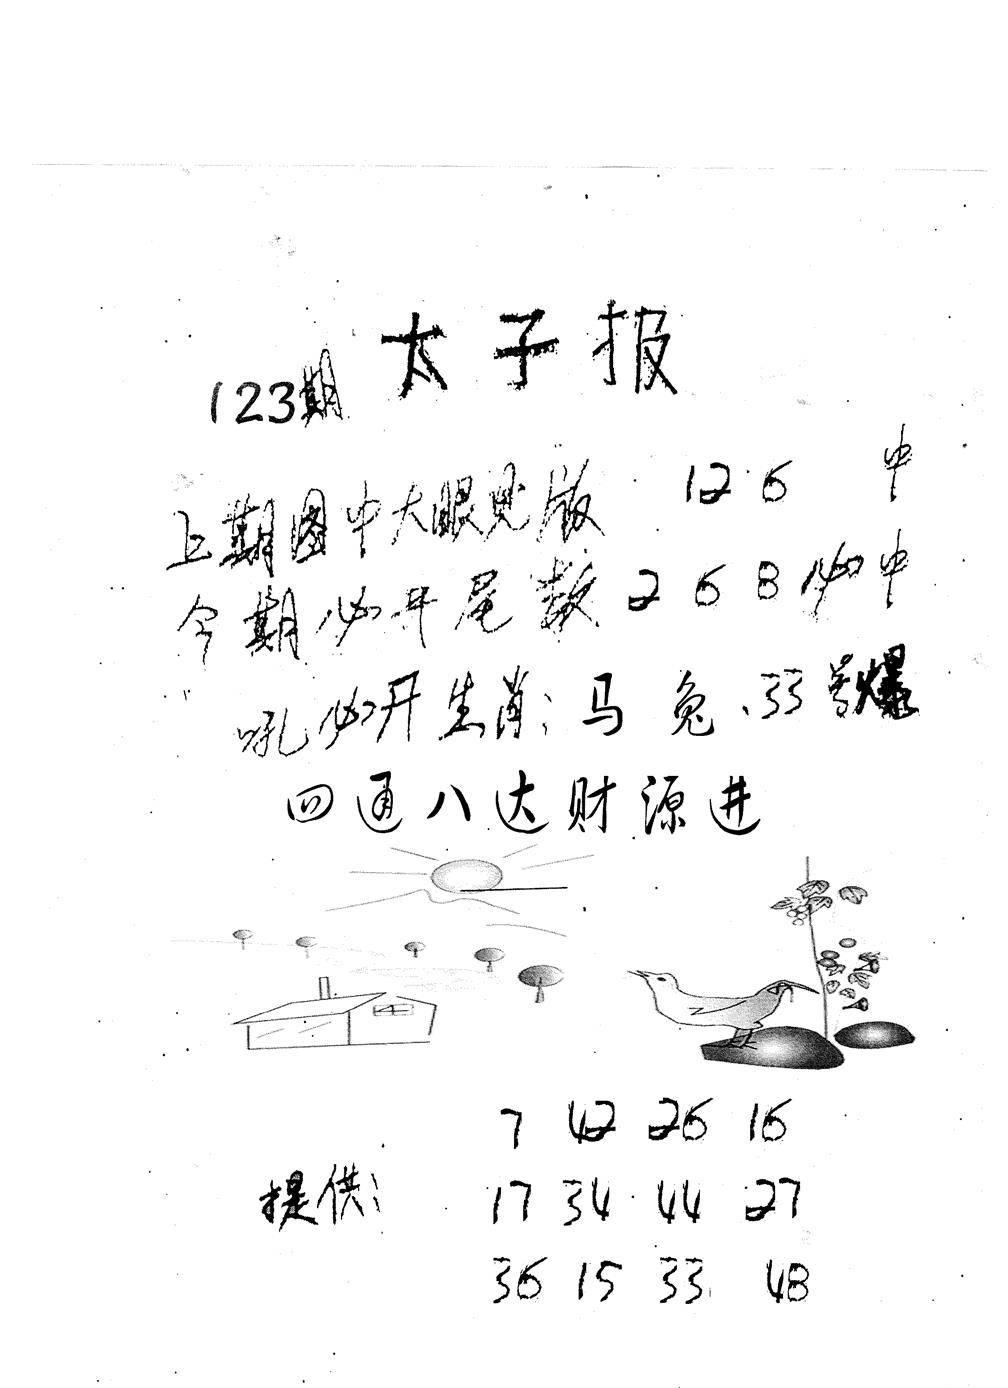 太子报
123期
上期图中大眼见版 126 中
今期必开尾数 2 6 8 必中
吼必开生肖：马 兔、33号爆
四通八达财源进
7 42 26 16
提供： 17 34 44 27
36 15 33 48